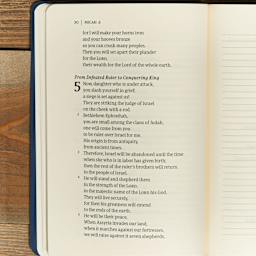 30 | MICAH 4
for I will make your horns iron
and your hooves bronze
so you can crush many peoples.
Then you will set apart their plunder
for the LORD,
their wealth for the Lord of the whole earth.
From Defeated Ruler to Conquering King
5 Now, daughter who is under attack,
you slash yourself in grief;
a siege is set against us!
They are striking the judge of Israel
on the cheek with a rod.
2 Bethlehem Ephrathah,
you are small among the clans of Judah;
one will come from you
to be ruler over Israel for me.
His origin is from antiquity,
from ancient times.
3 Therefore, Israel will be abandoned until the time
when she who is in labor has given birth;
then the rest of the ruler's brothers will return
to the people of Israel.
4 He will stand and shepherd them
in the strength of the LORD,
in the majestic name of the LORD his God.
They will live securely,
for then his greatness will extend
to the ends of the earth.
5 He will be their peace.
When Assyria invades our land,
when it marches against our fortresses,
we will raise against it seven shepherds,